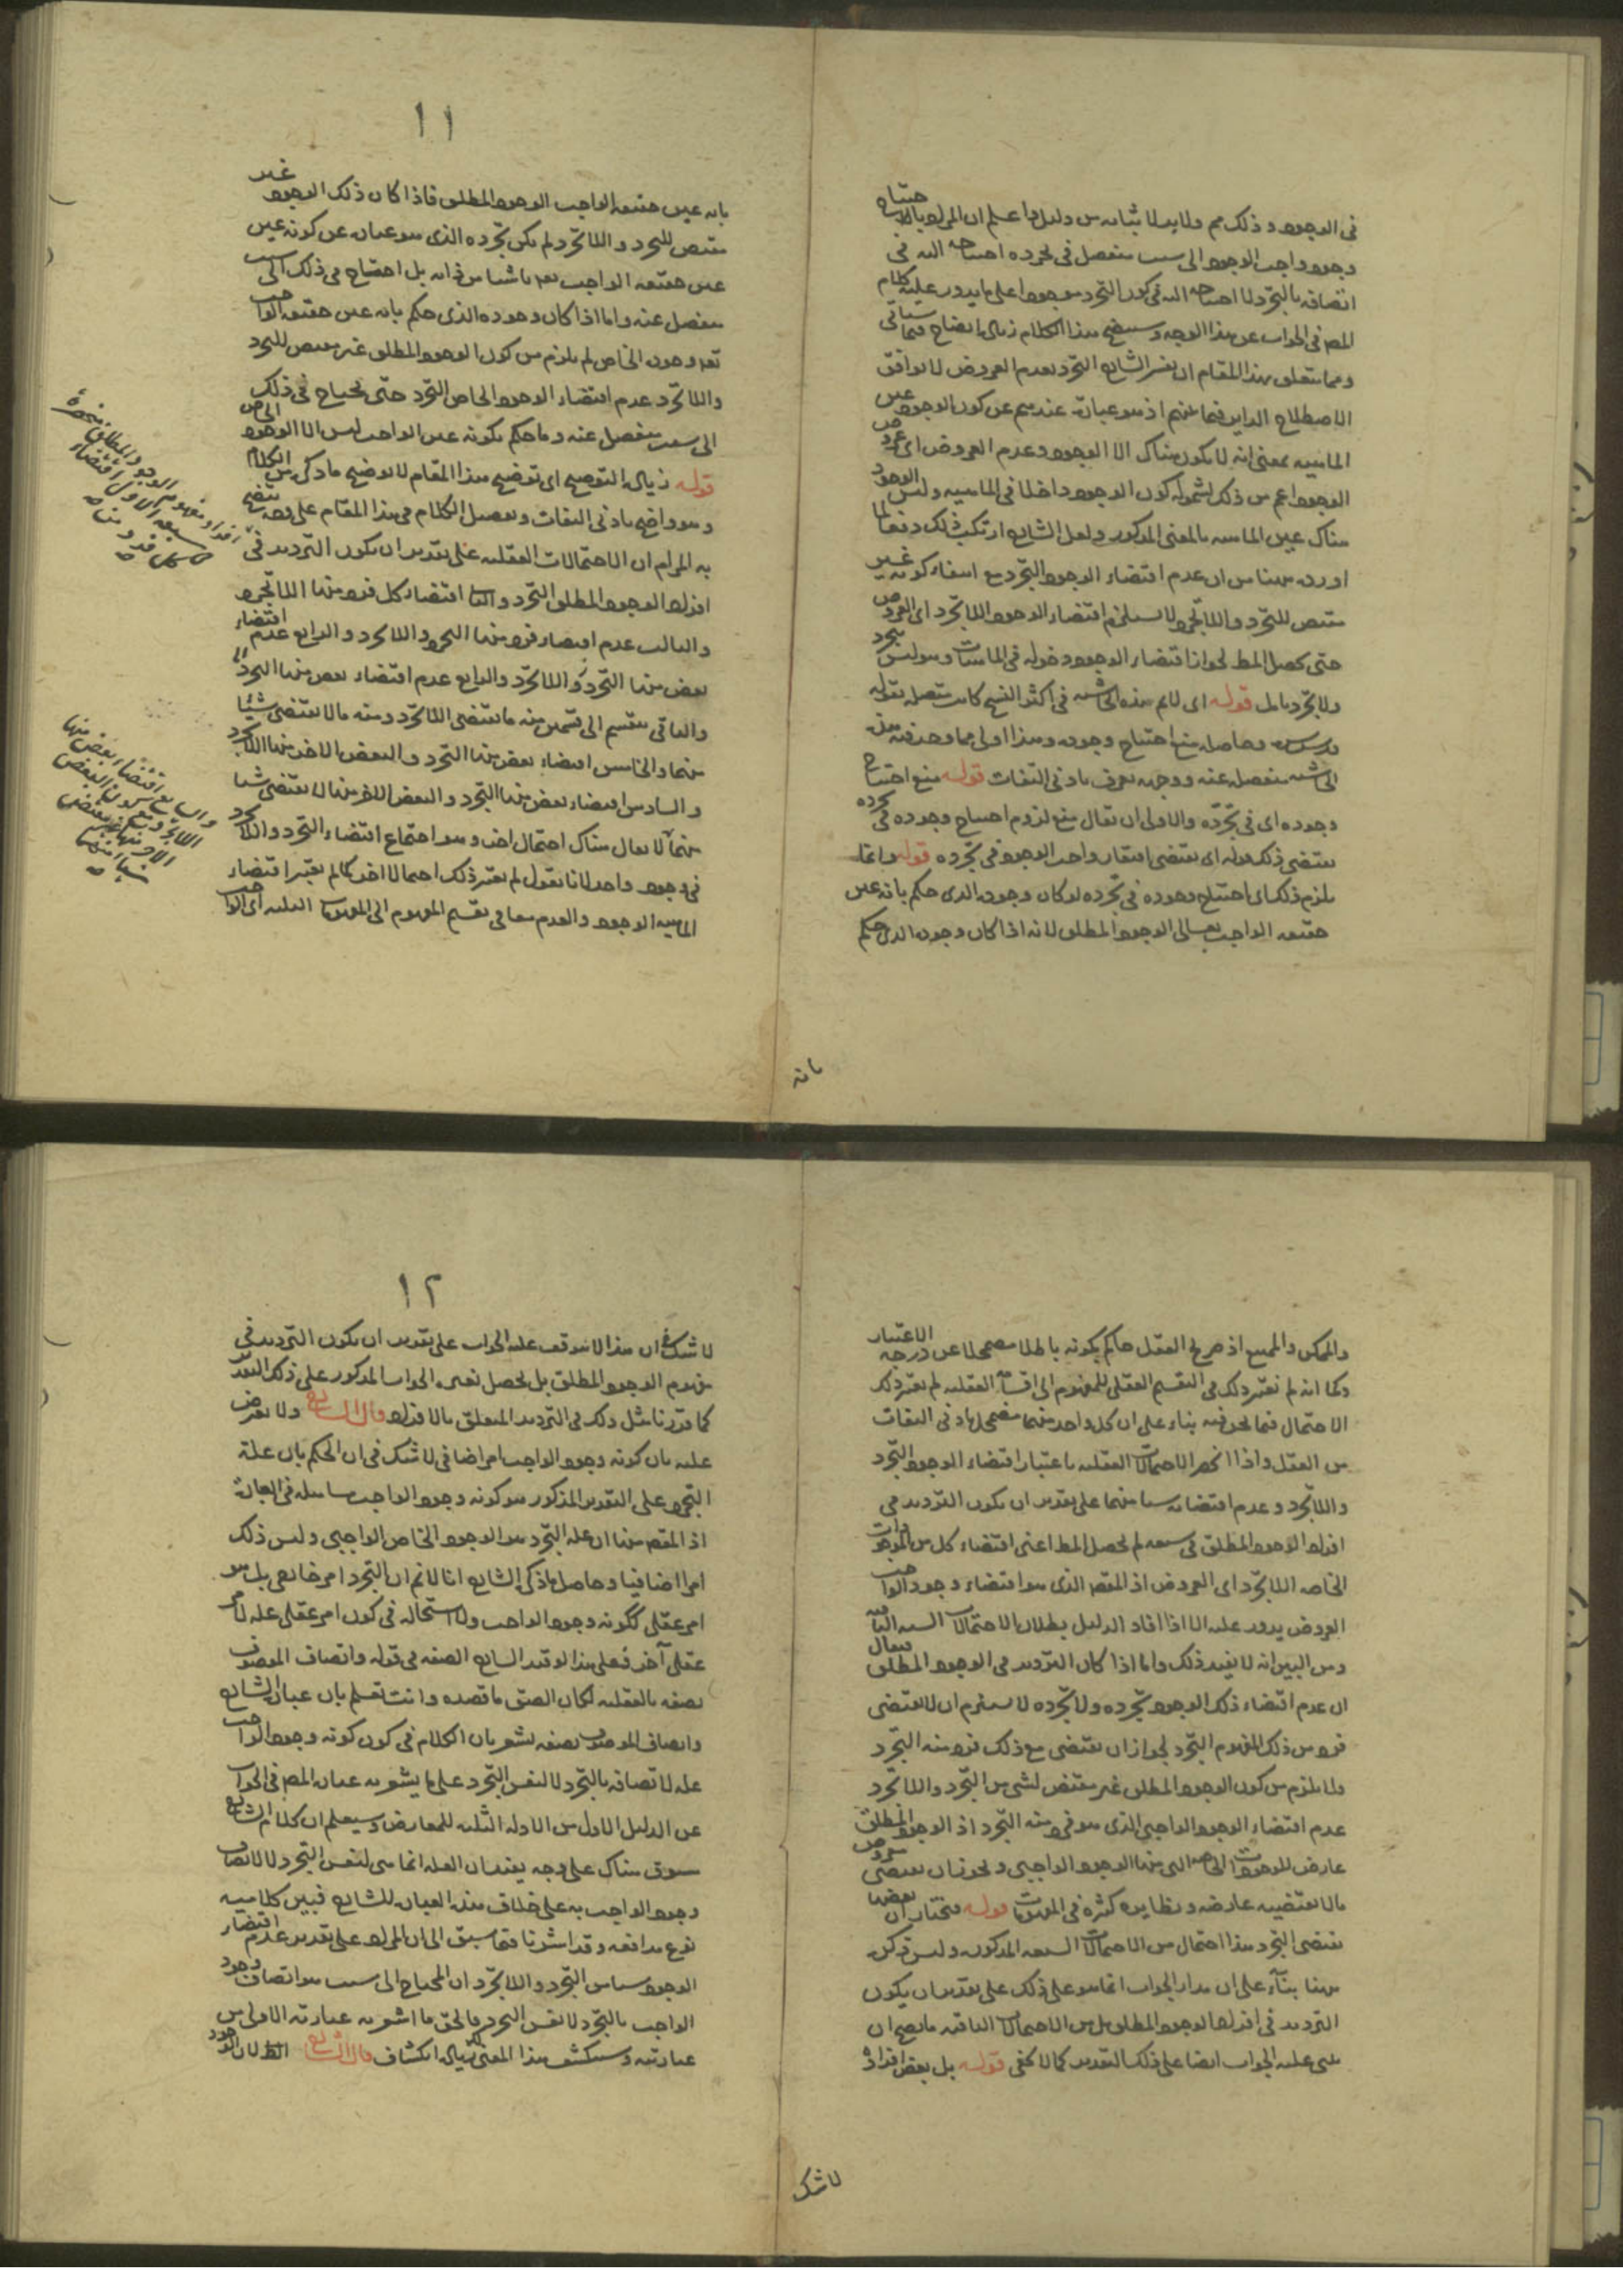 في الوجود وذلك مم ولابد لاثباته من دليل واعلم ان المراد بالاحتياج
وجود واجب الوجود الى سبب منفصل في تجرده احتياجه اليه في
اتصافه بالتجرد لا احتياجه اليه في كون التجرد موجودا على ما يدور عليه كلام
المص في الجواب عن هذا الوجه وسيتضح هذا الكلام زيادة ايضاح فيما سيأتي
ومما يتعلق بهذا المقام ان تفسير الشارح التجرد بعدم العروض لا يوافق
الاصطلاح الداير فيما بينهم اذ هو عبارة عندهم عن كون الوجود عين
الماهية بمعنى انه لا يكون هناك الا الوجود وعدم العروض اي عروض
الوجود اعم من ذلك لشموله كون الوجود داخلا في الماهية وليس الوجود
هناك عين الماهية بالمعنى المذكور ولعل الشارح ارتكب ذلك دفعا لما
اورد ههنا من ان عدم اقتضاء الوجود التجرد مع انتفاء كونه غير
مقتض للتجرد واللاتجرد لا يستلزم اقتضاء الوجود اللاتجرد اي العروض
حتى يحصل المط لجواز اقتضاء الوجود دخوله في الماهيات وهو ليس بتجرد
ولا تجرد تأمل قوله اي لانم هذه الحاشية في اكثر النسخ كانت متصلة بقوله
وحاصله منع احتياج وجوده وهذا اولى مما وجد فيه هذه
الحاشية منفصلة عنه ووجهه يعرف بادنى التفات قوله منع احتياج
وجوده اي في تجرده والاولى ان يقال منع لزوم احتياج وجوده في تجرده
يقتضي ذلك قوله اي يقتضي افتقار واجب الوجود في تجرده قوله وانما
يلزم ذلك اي احتياج وجوده في تجرده لو كان وجوده الذي حكم بانه عين
حقيقة الواجب تعالى الوجود المطلق لانه اذا كان وجوده الذي حكم
بانه
١١
بانه عين حقيقة الواجب الوجود المطلق فاذا كان ذلك الوجود غير
مقتض للتجرد واللاتجرد لم يكن تجرده الذي هو عبارة عن كونه عين
عين حقيقة الواجب تعه ناشيا من ذاته بل احتاج في ذلك الى سبب
منفصل عنه واما اذا كان وجوده الذي حكم بانه عين حقيقة الواجب
تعه وجوده الخاص لم يلزم من كون الوجود المطلق غير مقتض للتجرد
واللاتجرد عدم اقتضاء الوجود الخاص التجرد حتى يحتاج في ذلك
الى سبب منفصل عنه وما حكم بكونه عين الواجب ليس الا الوجود الخاص
قوله زيادة التوضيح اي توضيح هذا المقام لا توضيح ما ذكر من الكلام
وهو واضح بادنى التفات وتفصيل الكلام في هذا المقام على وجه يتضح
به المرام ان الاحتمالات العقلية على تقدير ان يكون الترديد في
افراد الوجود المطلق التجرد والثاني اقتضاء كل فرد منها اللاتجرد
والثالث عدم اقتضاء فرد منها التجرد واللاتجرد والرابع عدم اقتضاء
بعض منها التجرد واللاتجرد والرابع عدم اقتضاء بعض منها التجرد
والباقي ينقسم الى قسمين منه ما يقتضي اللاتجرد ومنه ما لا يقتضي شيئا
منهما والخامس اقتضاء بعض منها التجرد والبعض الاخر منها اللاتجرد
والسادس اقتضاء بعض منها التجرد والبعض الاخر منها لا يقتضي شيا
منهما لا يقال هناك احتمال اخر وهو اجتماع اقتضاء التجرد واللاتجرد
في وجود واحد لانا نقول لم يعتبر ذلك احتمالا اخر كما لم يعتبر اقتضاء
الماهية الوجود والعدم معا في تقسيم المفهوم الى المفهومات الثلثة اي الواجب
افراد مفهوم الوجود المطلق منحصرة
في سبعة الاول اقتضاء
كل فرد منها صح
والسابع اقتضاء بعض منها
اللاتجرد مع كون البعض
الاخر منها غير مقتض
شيئا منهما
صح
والممكن والممتنع اذ صريح العقل حاكم بكونه باطلا مضمحلا عن درجة الاعتبار
وكما انه لم يعتبر ذلك في التقسيم العقلي للمفهوم الى اقسامه العقلية لم يعتبر ذلك
الاحتمال فيما نحن فيه بناء على ان كل واحد منهما مضمحل بادنى التفات
من العقل واذا انحصر الاحتمالات العقلية باعتبار اقتضاء الوجود التجرد
واللاتجرد وعدم اقتضائه شيا منهما على تقدير ان يكون الترديد في
افراد الوجود المطلق في سبعة لم يحصل المط اعني اقتضاء كل من الموجودات
الخاصة اللاتجرد اي العروض اذ المقصد الذي هو اقتضاء وجود الواجب
العروض يدور عليه الا اذا افاد الدليل بطلان الاحتمالات الستة الباقية
ومن البين انه لا يفيد ذلك واما اذا كان الترديد في الوجود المطلق فيقال
ان عدم اقتضاء ذلك الوجود تجرده ولا تجرده لا يستلزم ان لا يقتضي
فرد من ذلك المفهوم التجرد لجواز ان يقتضي مع ذلك فرد منه التجرد
ولا يلزم من كون الوجود المطلق غير مقتض لشي من التجرد واللاتجرد
عدم اقتضاء الوجود الواجبي الذي هو فرد منه التجرد اذ الوجود المطلق
عارض للوجودات الخاصة التي منها الوجود الواجبي ويجوز ان يقتضي معروض
ما لا يقتضيه عارضه ونظايره كثيرة في المفهومات قوله فنختار ان بعضها
يقتضي التجرد هذا احتمال من الاحتمالات السبعة المذكورة وليس ذكره
ههنا بناء على ان مدار الجواب انما هو على ذلك على تقدير ان يكون
الترديد في افراد الوجود المطلق بل من الاحتمالات الباقية ما يصح ان
يبني عليه الجواب ايضا على ذلك التقدير كما لا يخفى قوله بل بعض افراده
لا شك
١٢
لا شك في ان هذا لا يتوقف عليه الجواب على تقدير ان يكون الترديد في
مفهوم الوجود المطلق بل يحصل بغيره الجواب المذكور على ذلك التقدير
كما قررنا مثل ذلك في الترديد المتعلق بالافراد قال الشارح ولا يعترض
عليه بان كونه وجود الواجب امر اضافي لا شك في ان الحكم بان علة
التجرد على التقدير المذكور هو كونه وجود الواجب مساهلة في العبارة
اذ المقصد منها ان علة التجرد هو الوجود الخاص الواجبي وليس ذلك
امرا اضافيا وحاصل ما ذكره الشارح انا لا نم ان التجرد امر خارجي بل هو
امر عقلي ككونه وجود الواجب ولا استحالة في كون امر عقلي علة لامر
عقلي آخر فعلى هذا لو قيد الشارح الصفة في قوله واتصاف الموصوف
بصفة بالعقلية لكان الصق بما قصده وانت تعلم بان عبارة الشارح
واتصاف الموصوف بصفة تشعر بان الكلام في كون كونه وجود الواجب
علة لاتصافه بالتجرد لا لنفس التجرد على ما يشعر به عبارة المص في الجواب
عن الدليل الاول من الادلة الثلثة للمعارض وسيعلم ان كلام الشارح
سوق هناك على وجه يفيد ان العلة انما هي لنفس التجرد لا لاتصاف
وجود الواجب به على خلاف هذه العبارة للشارح فبين كلاميه
نوع مدافعة وقد اشرنا فيما سبق الى ان المراد على تقدير عدم اقتضاء
الوجود شيا من التجرد واللاتجرد ان المحتاج الى سبب هو اتصاف وجود
الواجب بالتجرد لا نفس التجرد فالحق ما اشعر به عبارته الاولى من
عبارتيه وسينكشف هذا المعنى لك زيادة انكشاف قال الشارح الظ لان الوجود